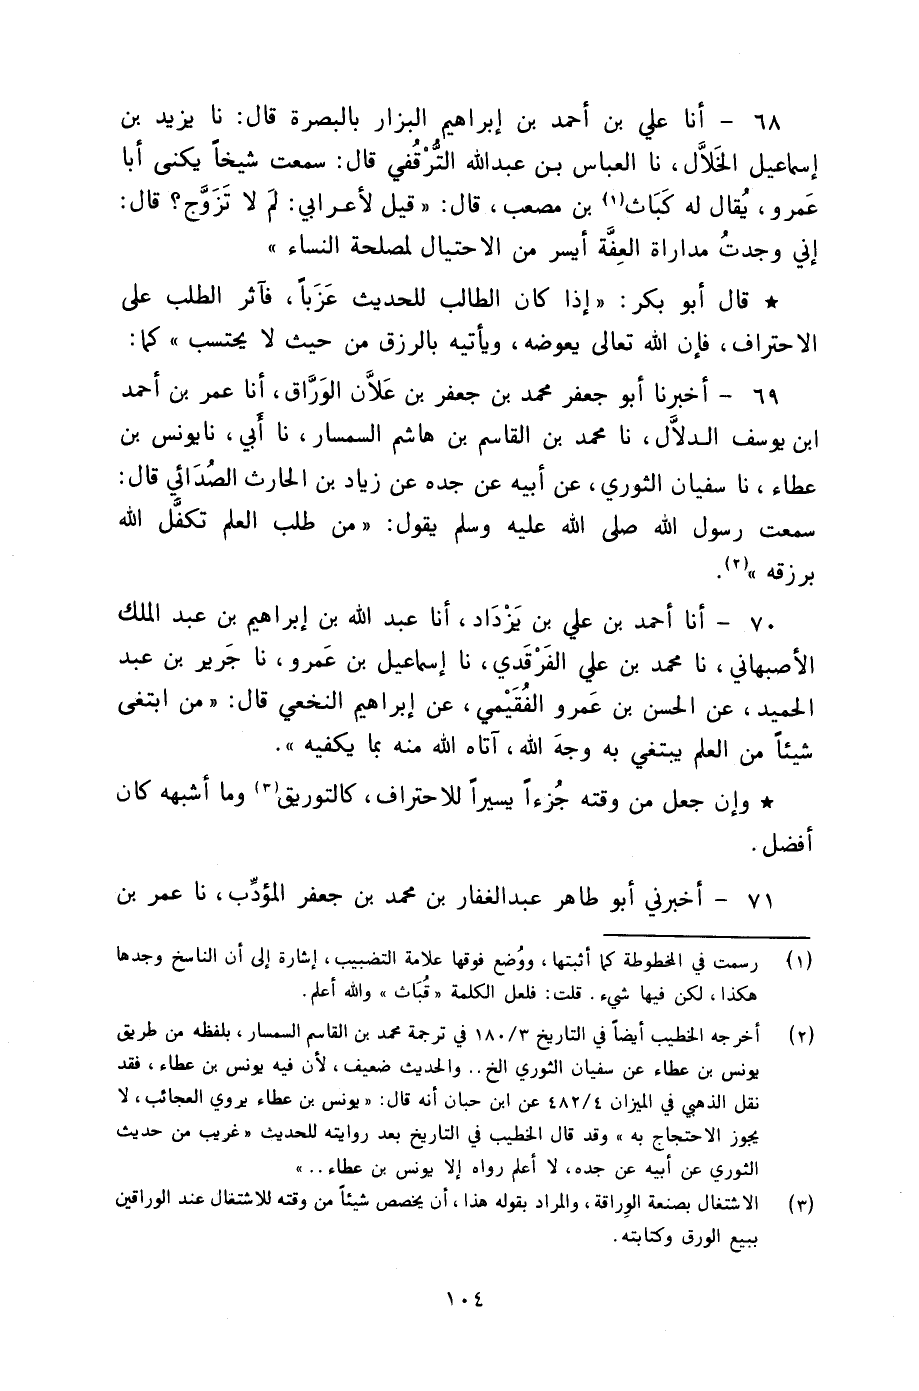 ٦٨ - أنا علي بن أحمد بن إبراهيم البزار بالبصرة قال: نا يزيد بن
إسماعيل الخَلاَّل، نا العباس بن عبدالله التُّرْقُفي قال: سمعت شيخاً يكنى أبا
عَمرو، يُقال له كَبَاث(١) بن مصعب، قال: « قيل لأعرابي: لمَ لا تَزَوَّج؟ قال:
إني وجدتُ مداراة العِفَّة أيسر من الاحتيال لمصلحة النساء »
★ قال أبو بكر: « إذا كان الطالب للحديث عَزَباً، فآثر الطلب على
الاحتراف، فإن الله تعالى يعوضه، ويأتيه بالرزق من حيث لا يحتسب » كما:
٦٩ - أخبرنا أبو جعفر محمد بن جعفر بن عَلاَّن الوَرَّاق، أنا عمر بن أحمد
ابن يوسف الدلاَّل، نا محمد بن القاسم بن هاشم السمسار، نا أَبي، نايونس بن
عطاء، نا سفيان الثوري، عن أبيه عن جده عن زياد بن الحارث الصُدَائي قال:
سمعت رسول الله صلى الله عليه وسلم يقول: « من طلب العلم تكفَّل الله
برزقه »(٢).
٧٠ - أنا أحمد بن علي بن يَزْدَاد، أنا عبد الله بن إبراهيم بن عبد الملك
الأصبهاني، نا محمد بن علي الفَرْقَدي، نا إسماعيل بن عَمرو، نا جَرير بن عبد
الحميد، عن الحسن بن عَمرو الفُقَيْمي، عن إبراهيم النخعي قال: « من ابتغى
شيئاً من العلم يبتغي به وجهَ الله، آتاه الله منه بما يكفيه ».
★ وإن جعل من وقته جُزءاً يسيراً للاحتراف، كالتوريق(٣) وما أشبهه كان
أفضل.
٧١ - أخبرني أبو طاهر عبدالغفار بن محمد بن جعفر المؤدِّب، نا عمر بن
(١) رسمت في المخطوطة كما أثبتها، ووُضع فوقها علامة التضبيب، إشارة إلى أن الناسخ وجدها
هكذا، لكن فيها شيء. قلت: فلعل الكلمة « قُبَاث » والله أعلم.
(٢) أخرجه الخطيب أيضاً في التاريخ ١٨٠/٣ في ترجمة محمد بن القاسم السمسار، بلفظه من طريق
يونس بن عطاء عن سفيان الثوري الخ.. والحديث ضعيف، لأن فيه يونس بن عطاء، فقد
نقل الذهبي في الميزان ٤٨٢/٤ عن ابن حبان أنه قال: « يونس بن عطاء يروي العجائب، لا
يجوز الاحتجاج به » وقد قال الخطيب في التاريخ بعد روايته للحديث « غريب من حديث
الثوري عن أبيه عن جده، لا أعلم رواه إلا يونس بن عطاء.. »
(٣) الاشتغال بصنعة الوِراقة، والمراد بقوله هذا، أن يخصص شيئاً من وقته للاشتغال عند الوراقين
ببيع الورق وكتابته.
١٠٤